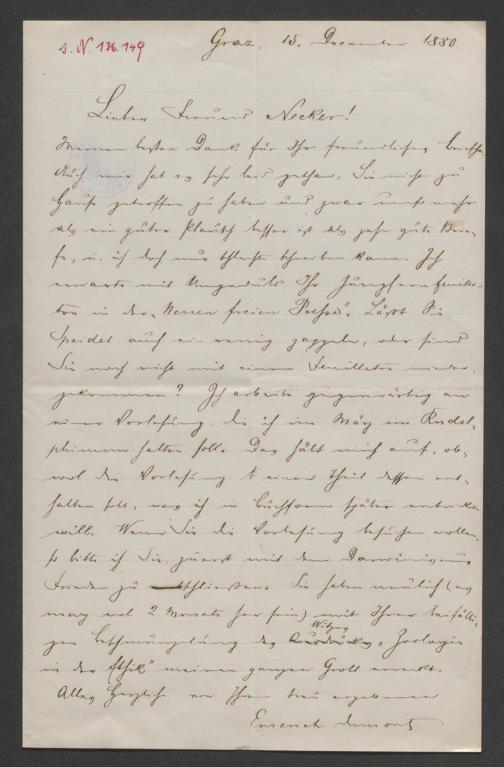 s. N. 136.149
Graz, 15. December 1880.
Lieber Freund Necker!
Meinen besten Dank für Ihr freundliches Briefche
Auch mir hat es sehr leid gethan, Sie nicht zu
Hause getroffen zu haben und zwar umso mehr
als ein guter Plausch besser ist als zehn gute Brie-
fe, u. ich doch nur schlechte schreiben kann. Ich
erwarte mit Ungeduld Ihr Jungfernfeuille-
ton in der „Neuen freien Presse“. Läßt Sie
Speidel auch ein wenig zappeln, oder sind
Sie noch nicht mit einem Feuilleton nieder-
gekommen? Ich arbeite gegenwärtig an
einer Vorlesung, die ich im März im Rudol-
phinum halten soll. Das hält mich auf, ob-
wol die Vorlesung einen Theil dessen ent-
halten soll, was ich in Buchform später entwickeln
will. Wenn Sie die Vorlesung besuchen wollen,
so bitte ich Sie, zuerst mit dem Darwinismus
Frieden zu schließen. Sie haben neulich (es
mag wol 2 Monate her sein) mit Ihrer beifälli-
gen Witzes
des Ausdrucks „Zoologie
in der Ethik“ meinen ganzen Groll erweckt.
Alles Herzliche von Ihrem treu ergebenen
Emerich Dumont